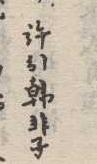 許引韓非子